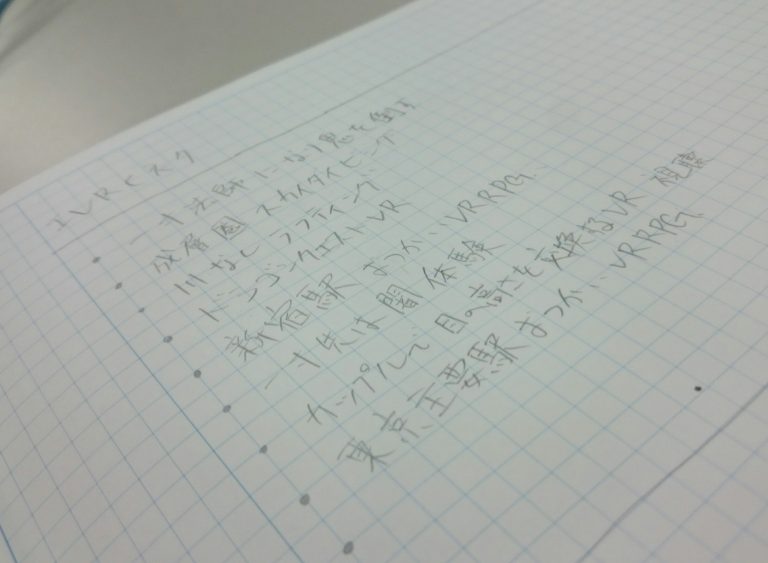 IVRCネタ
・一寸法師になり鬼を倒す
・成層圏スカイダイビング
・川なしラフティング
・ドンブンクエストVR
・新宿駅 おつかいVRRPG
・一寸先は闇 体験
・カップルで目の高さを交換するVR 視聴
・東京主要駅おつかいVRRPG